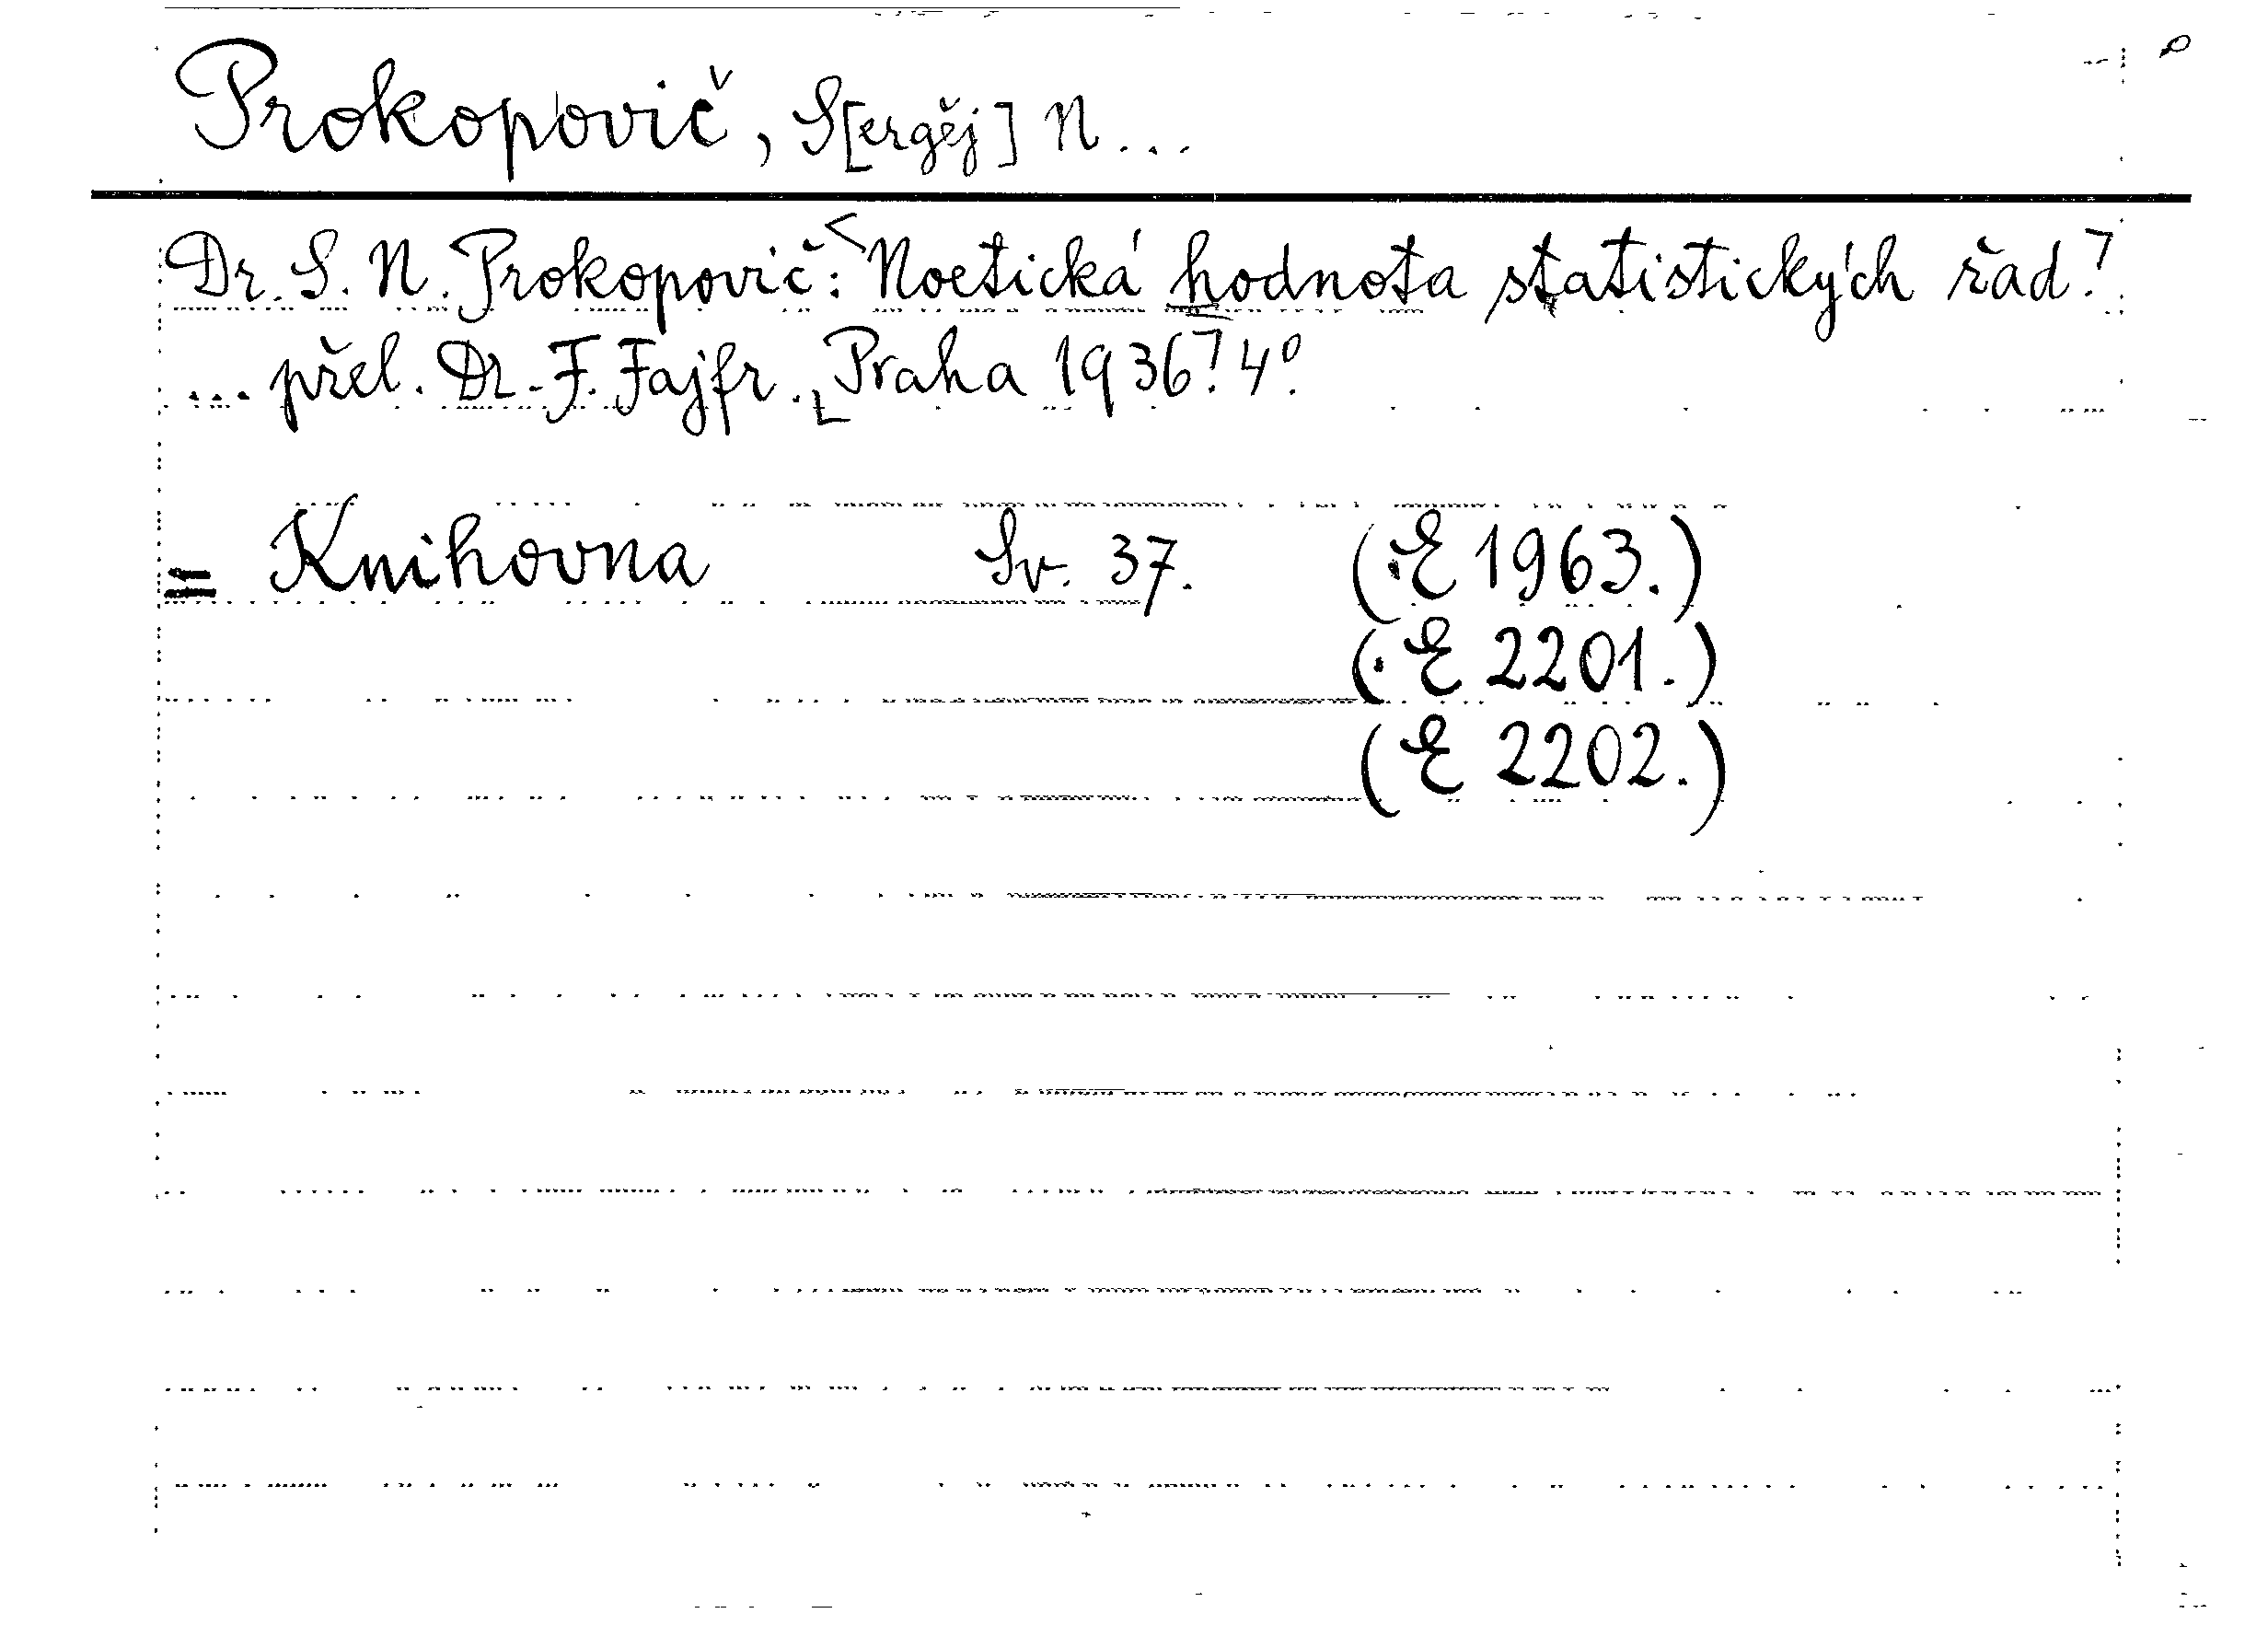 Prokopovič, S[ergěj] N...
Dr. S. N. Prokopovič: Noetická hodnota statistických řad.
... přel. Dr. F. Fajfr. Praha 1936. 4°.
= Knihovna Sv. 37. (E 1963.)
(E 2201.)
(E 2202.)